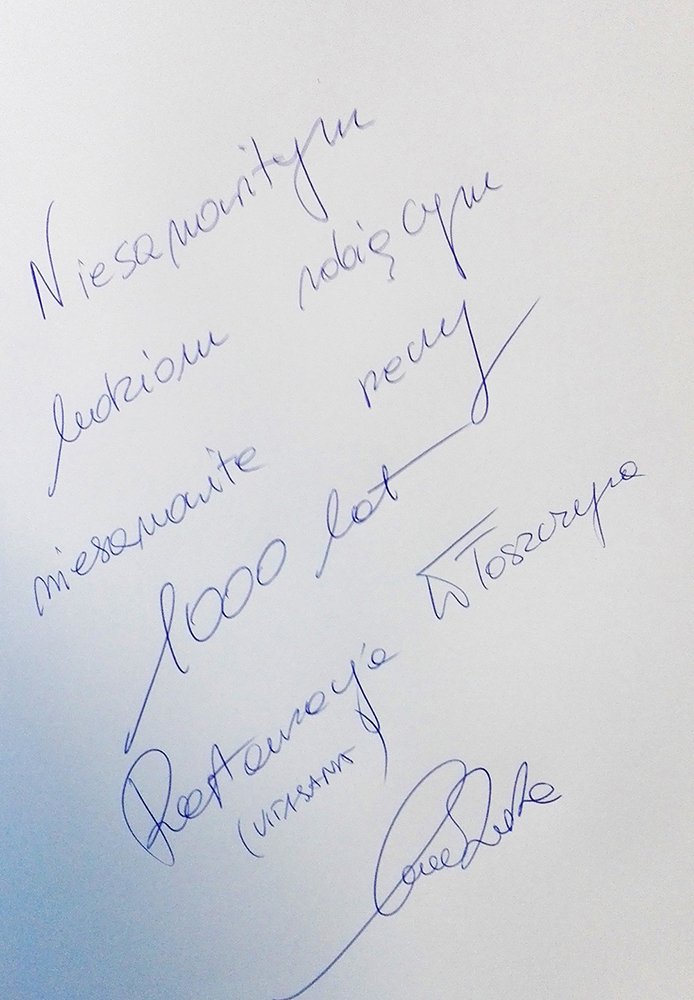 Niesamowitym
ludziom robiącym
niesamowite rzeczy
1000 lat
Restauracja Włoszczyzna
(VITASANA